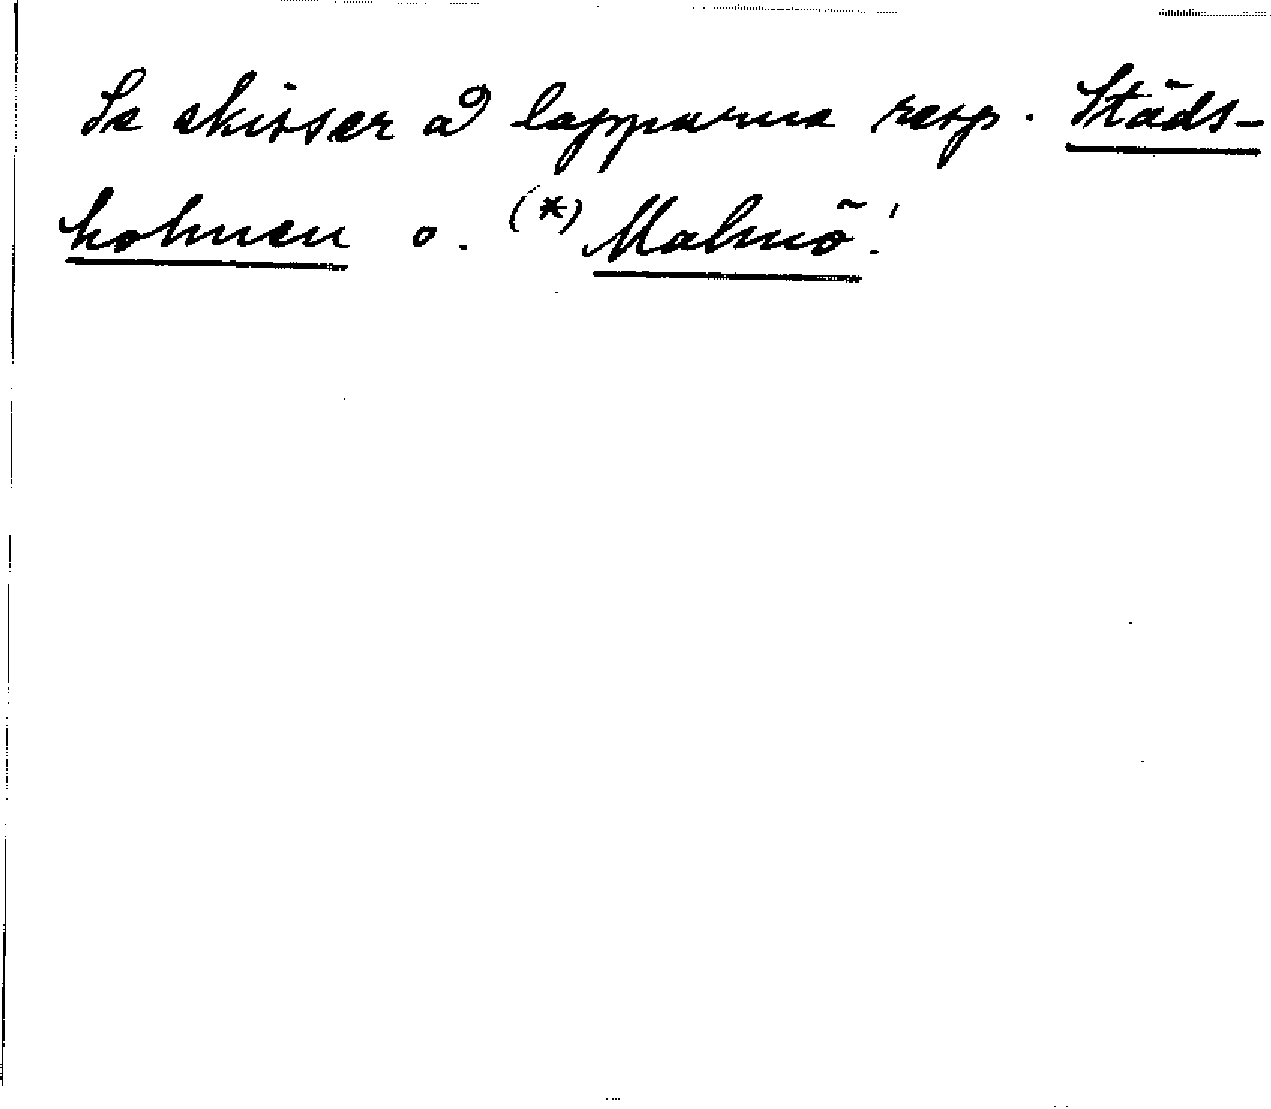 Se skisser å lapparna resp. Städs-
holmen o. (*) Malmö!